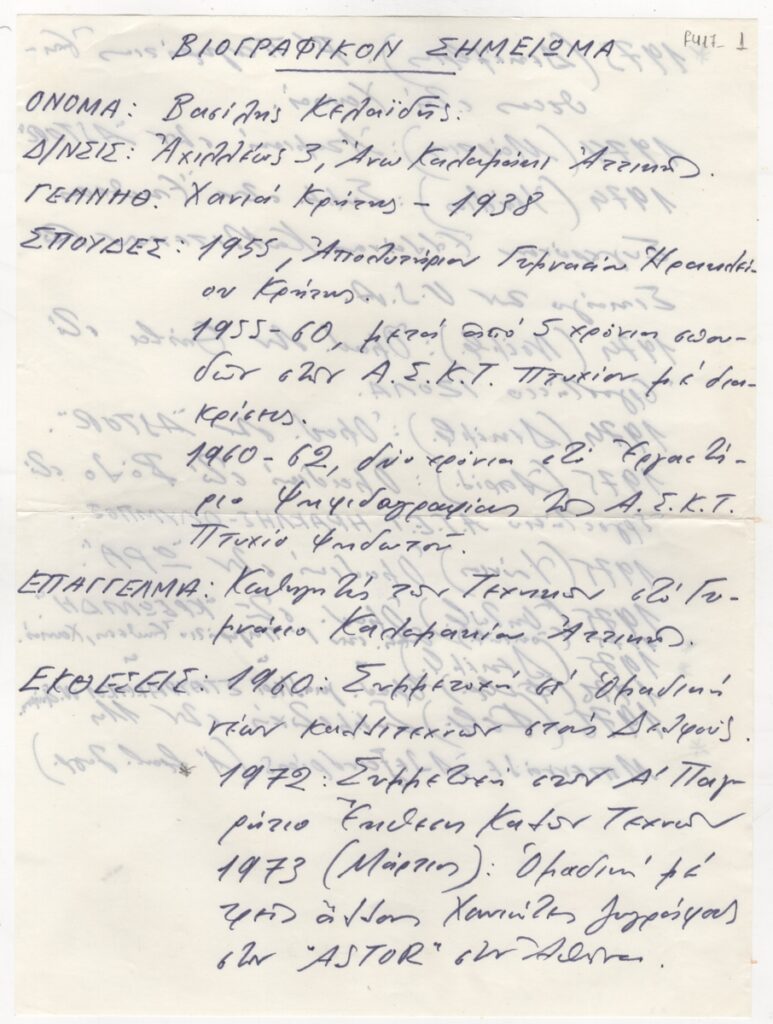 F417- 1
ΒΙΟΓΡΑΦΙΚΟΝ ΣΗΜΕΙΩΜΑ
ΟΝΟΜΑ: Βασίλης Κελαϊδής.
Δ/ΝΣΙΣ: Ἀχιλλέως 3, Ἄνω Καλαμάκι Ἀττικῆς.
ΓΕΝΝΗΘ. Χανιά Κρήτης - 1938
ΣΠΟΥΔΕΣ: 1955, Ἀπολυτήριον Γυμνασίου Ἡρακλεί-
ου Κρήτης.
1955-60, μετά ἀπό 5 χρόνια σπου-
δῶν στήν Α.Σ.Κ.Τ. Πτυχίον μέ δια-
κρίσεις.
1960-62, δύο χρόνια στό Ἐργαστή-
ριο Ψηφιδογραφίας τῆς Α.Σ.Κ.Τ.
Πτυχίο ψηφιδωτοῦ.
ΕΠΑΓΓΕΛΜΑ: Καθηγητής τῶν Τεχνικῶν στό Γυ-
μνάσιο Καλαμακίου Ἀττικῆς.
ΕΚΘΕΣΕΙΣ: 1960: Συμμετοχή σέ ὁμαδική
νέων καλλιτεχνῶν στούς Δελφούς.
* 1972: Συμμετοχή στήν Α' Παγκ-
ρήτιο Ἔκθεση Καλῶν Τεχνῶν
1973 (Μάρτιος): Ὁμαδική μέ
τρεῖς ἄλλους Χανιῶτες ζωγράφους
στήν "ASTOR" στήν Ἀθήνα.